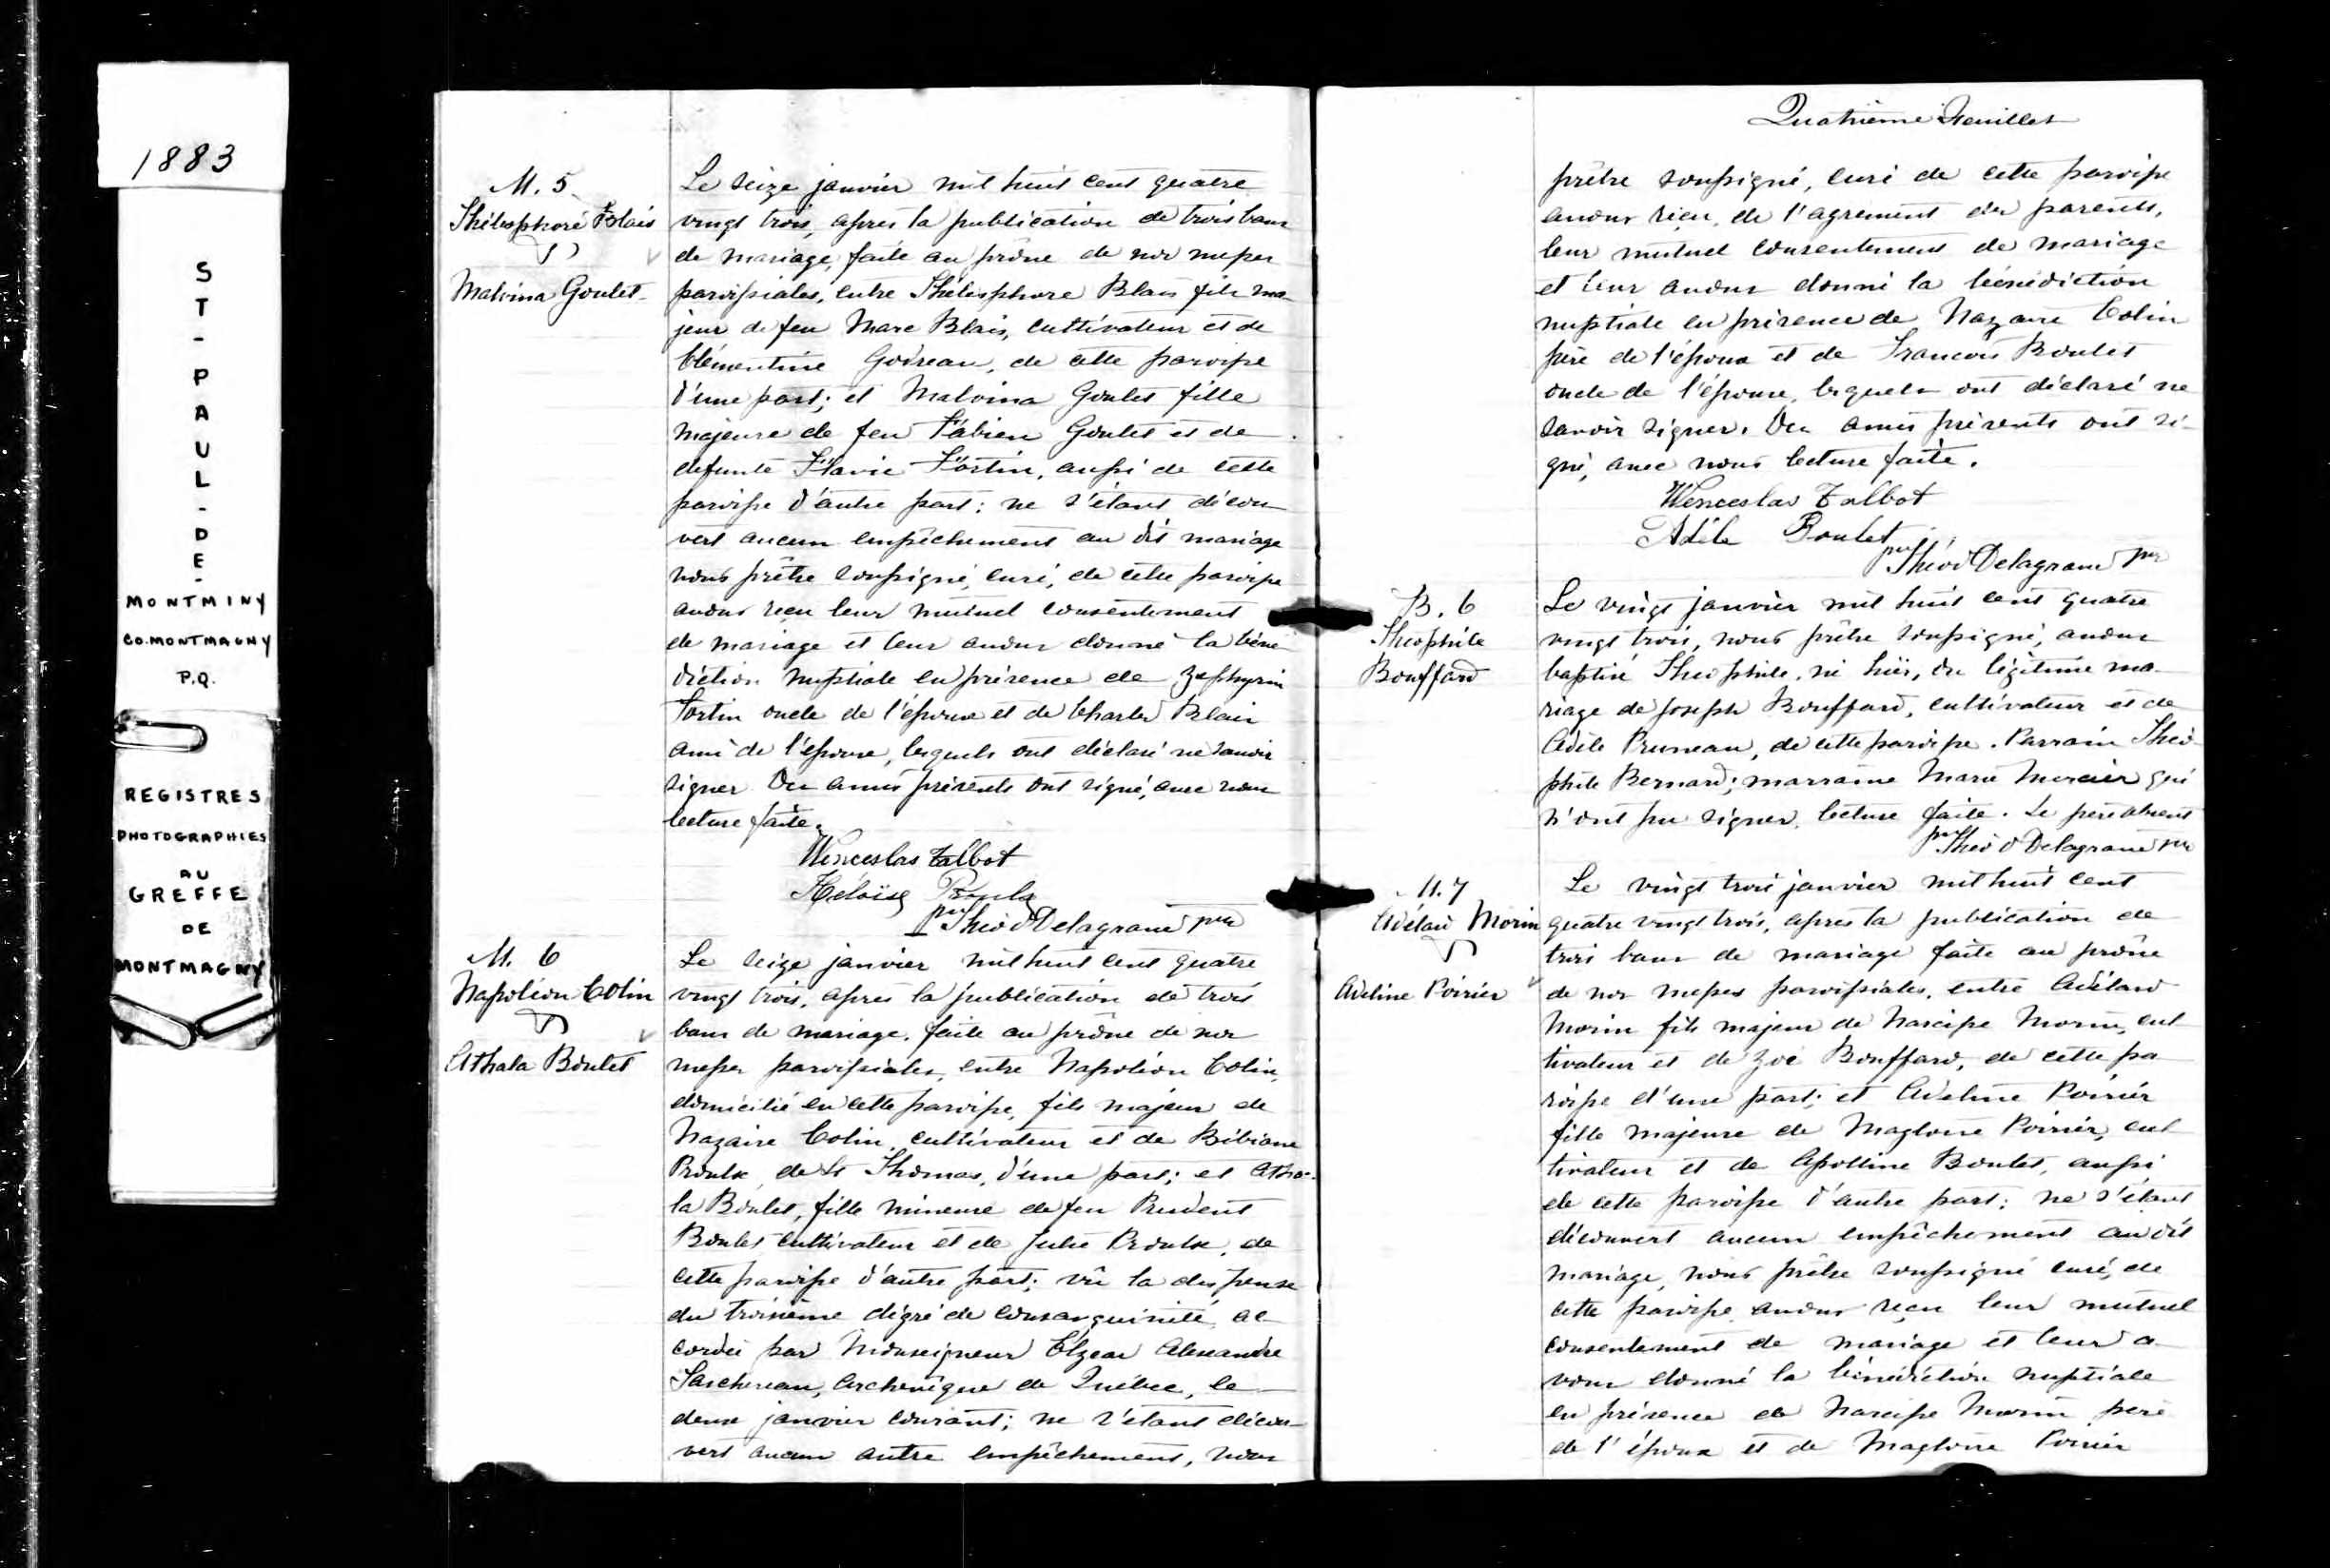 1883
ST-PAUL-DE-
MONTMINY
CO. MONTMAGNY
P.Q.
REGISTRES
PHOTOGRAPHIES
AU
GREFFE
DE
MONTMAGNY
M. 5
Thélesphore Blais
&
Malvina Goulet
Le seize janvier mil huit cent quatre
vingt trois, après la publication de trois bans
de mariage, faite au prône de nos messes
paroissiales, entre Thélesphore Blais fils ma-
jeur de feu Marc Blais, cultivateur et de
Clémentine Godreau, de cette paroisse
d'une part; et Malvina Goulet fille
majeure de feu Fabien Goulet et de
defunte Flavie Fortin, aussi de cette
paroisse d'autre part: ne s'étant décou-
vert aucun empêchement au dit mariage
nous prêtre soussigné, curé, de cette paroisse
avons reçu leur mutuel consentement
de mariage et leur avons donné la béné-
diction nuptiale en présence de Zephyrin
Fortin oncle de l'épouse et de Charles Blais
ami de l'épouse, lesquels ont déclaré ne savoir
signer Des amis présents ont signé, avec nous
lecture faite.
Wenceslas Talbot
Héloïse
Théod Delagrave ptre
M. 6
Napoléon Colin
&
Athala Boulet
Le seize janvier mil huit cent quatre
vingt trois, après la publication de trois
bans de mariage, faite au prône de nos
messes paroissiales, entre Napoléon Colin,
domicilié en cette paroisse, fils majeur de
Nazaire Colin, cultivateur et de Bibiane
Proulx, de St Thomas, d'une part; et Atha-
la Boulet, fille mineure de feu Prudent
Boulet cultivateur et de Julie Proulx, de
cette paroisse d'autre part; vû la dispense
du troisième dégré de consanguinité, ac-
cordée par Monseigneur Elzéar Alexandre
Taschereau, Archevêque de Québec, le
deux janvier courant; ne s'étant décou-
vert aucun autre empêchement, nous
Quatrième Feuillet
prêtre soussigné, curé de cette paroisse
avons reçu, de l'agrement des parents,
leur mutuel consentement de mariage
et leur avons donné la bénédiction
nuptiale en présence de Nazaire Colin
père de l'époux et de Francois Boulet
oncle de l'épouse, lesquels ont déclaré ne
savoir signer. Des amis présents ont si-
gné, avec nous lecture faite.
Wenceslas Talbot
Adèle Boulet
Théod Delagrave ptre
B. 6
Théophile
Bouffard
Le vingt janvier mil huit cent quatre
vingt trois, nous prêtre soussigné, avons
baptisé Théophile, né hier, du légitime ma-
riage de Joseph Bouffard, cultivateur et de
Adèle Pruneau, de cette paroisse. Parrain Théo-
phile Bernard; marraine Marie Mercier qui
n'ont pu signer, lecture faite. Le père absent
Théod Delagrave ptre
M. 7
Adélard Morin
&
Adeline Poirier
Le vingt trois janvier mil huit cent
quatre vingt trois, après la publication de
trois bans de mariage faite au prône
de nos messes paroissiales, entre Adélard
Morin fils majeur de Narcisse Morin, cul-
tivateur et de Zoé Bouffard, de cette pa-
roisse d'une part; et Adeline Poirier
fille majeure de Magloire Poirier, cul-
tivateur et de Apolline Boulet, aussi
de cette paroisse d'autre part: ne s'étant
découvert aucun empêchement au dit
mariage, nous prêtre soussigné curé, de
cette paroisse avons reçu leur mutuel
consentement de mariage et leur a-
vons donné la bénédiction nuptiale
en présence de Narcisse Morin père
de l'époux et de Magloire Poirier